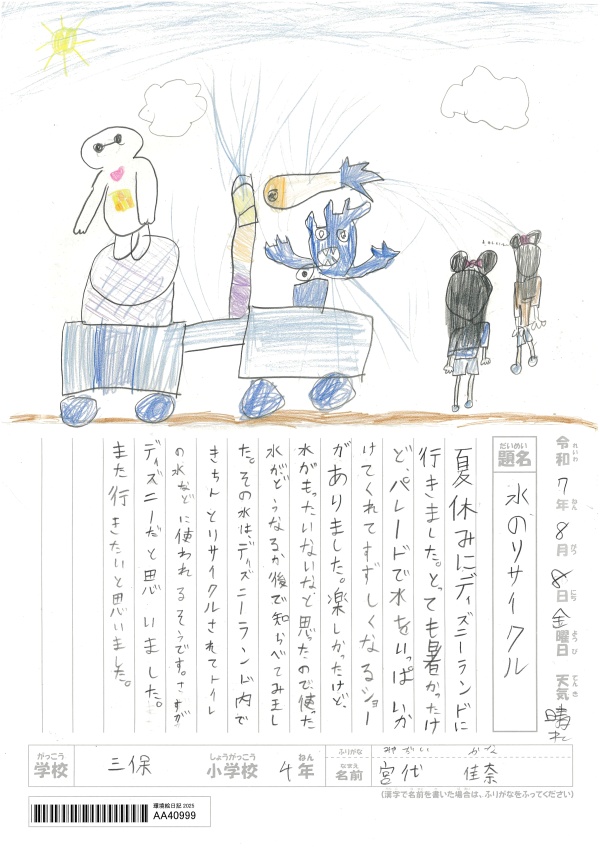 令和7年8月8日金曜日 天気 晴れ
れいわ ねん がつ にち ようび てんき
だいめい
題名 水のリサイクル
夏休みにディズニーランドに
行きました。とっても暑かったけ
ど、パレードで水をいっぱいか
けてくれてすずしくなるショー
がありました。楽しかったけど、
水がもったいないなと思ったので、使った
水がどうなるか後で知らべてみまし
た。その水は、ディズニーランド内で
きちんとリサイクルされてトイレ
の水などに使われるそうです。さすが
ディズニーだと思いました。
また行きたいと思いました。
がっこう しょうがっこう ねん
学校 三保 小学校 4年
ふりがな みやだい かな
なまえ
名前 宮代 佳奈
(漢字で名前を書いた場合は、ふりがなをふってください)
環境絵日記 2025
AA40999